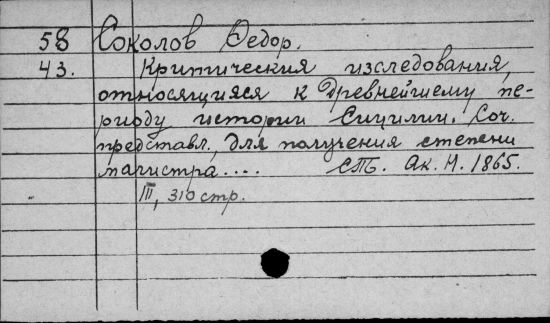 58 Соколов Федор.
43. Критическия изследования,
относящияся к древнейшему пе-
риоду истории Сицилии. Соч.
представл. для получения степени
магистра.... СПб. Ак. Н. 1865.
III, 310 стр.